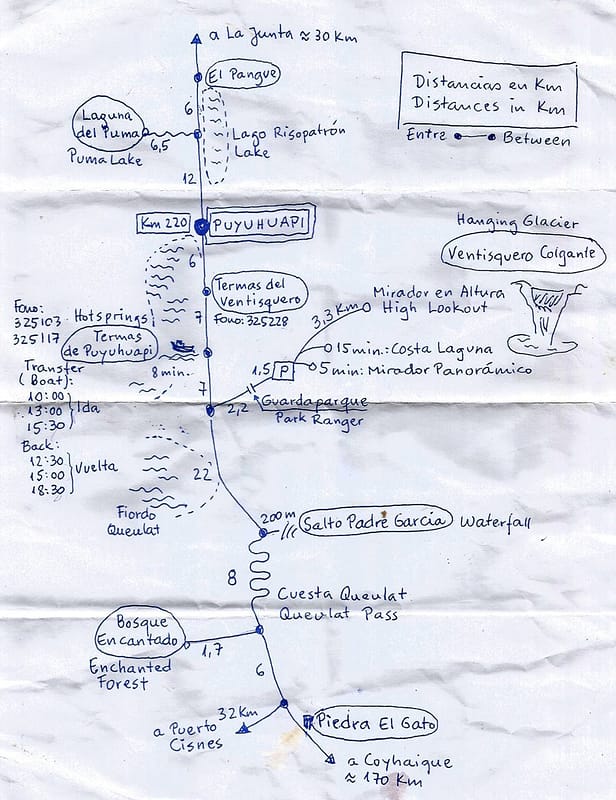 a La Junta ≈ 30 Km
El Pangue
Distancias en Km
Distances in Km
Entre Between
6
Laguna
del Puma
Puma Lake
6,5
Lago Risopatrón
Lake
12
Km 220
PUYUHUAPI
Hanging Glacier
Ventisquero Colgante
6
Termas del
Ventisquero
Fono: 325228
Mirador en Altura
High Lookout
3,3 Km
Fono:
325103
325117
Hotsprings
Termas
de Puyuhuapi
7
8 min.
15 min.: Costa Laguna
5 min: Mirador Panorámico
P
1,5
Transfer
(Boat):
10:00
13:00
15:30
Ida
7
2,2
Guardaparque
Park Ranger
Back:
12:30
15:00
18:30
Vuelta
22
Fiordo
Queulat
200 m
Salto Padre García
Waterfall
8
Cuesta Queulat
Queulat Pass
Bosque
Encantado
Enchanted
Forest
1,7
6
32 Km
a Puerto
Cisnes
Piedra El Gato
a Coyhaique
≈ 170 Km